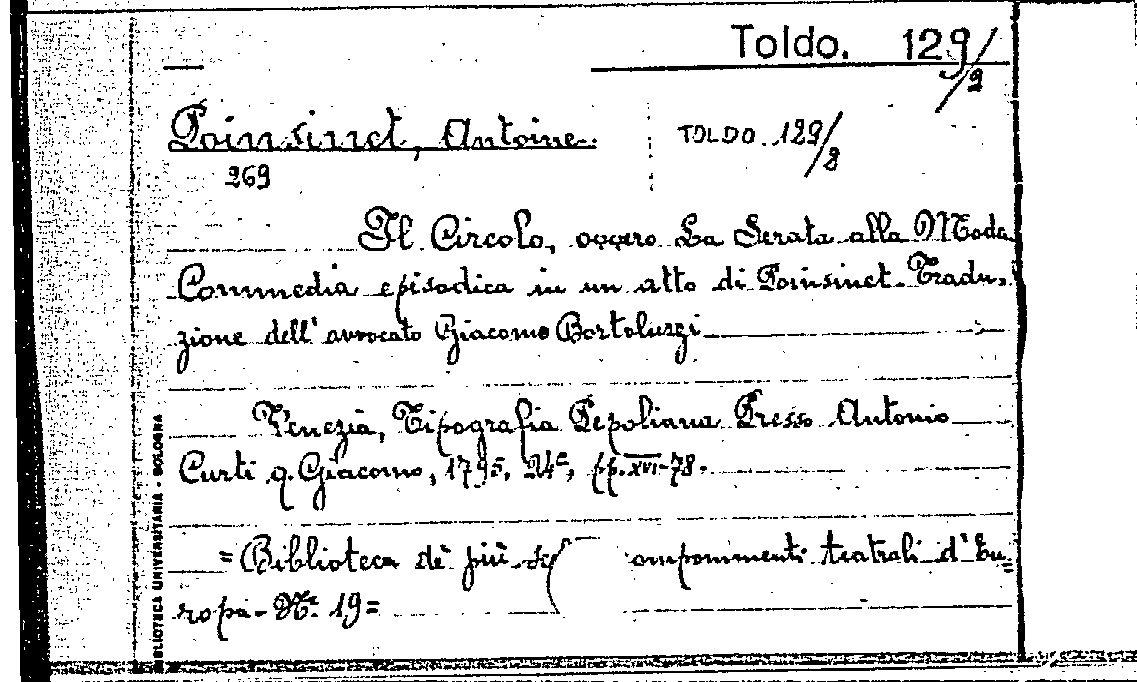 Toldo. 129/2
Poinsinet, Antoine. TOLDO. 129/2
269
Il Circolo, ovvero La Serata alla Moda
Commedia episodica in un atto di Poinsinet. Tradu-
zione dell' avvocato Giacomo Bortoluzzi
Venezia, Tipografia Pepoliana Presso Antonio
Curti q. Giacomo, 1795, 24º, pp. XVI-78.
= Biblioteca de' più omponimenti teatrali d'Eu=
ropa - Nº 19 =
BIBLIOTECA UNIVERSITARIA - BOLOGNA